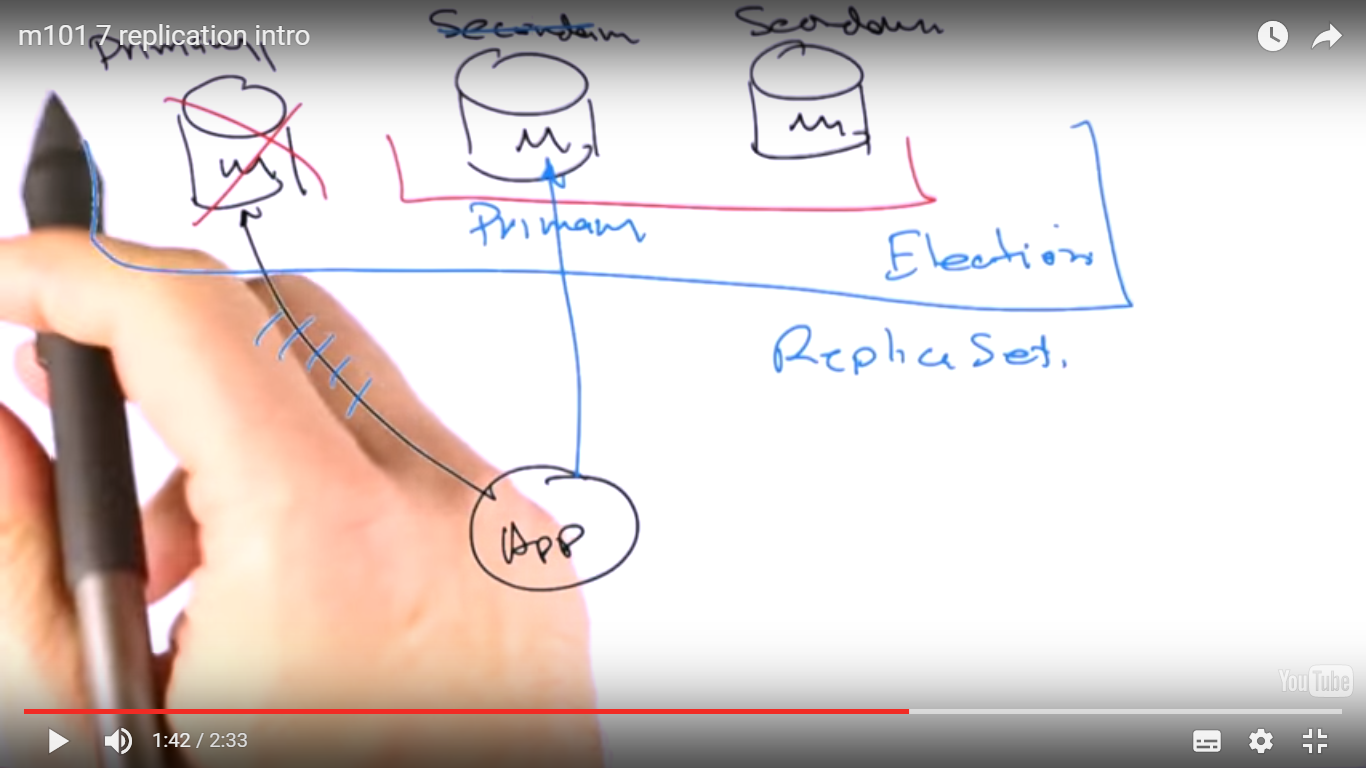 m101 7 replication intro
Primary
Secondary
Secondary
m
M
m
Primary
Election
Replica Set.
App
YouTube
1:42 / 2:33